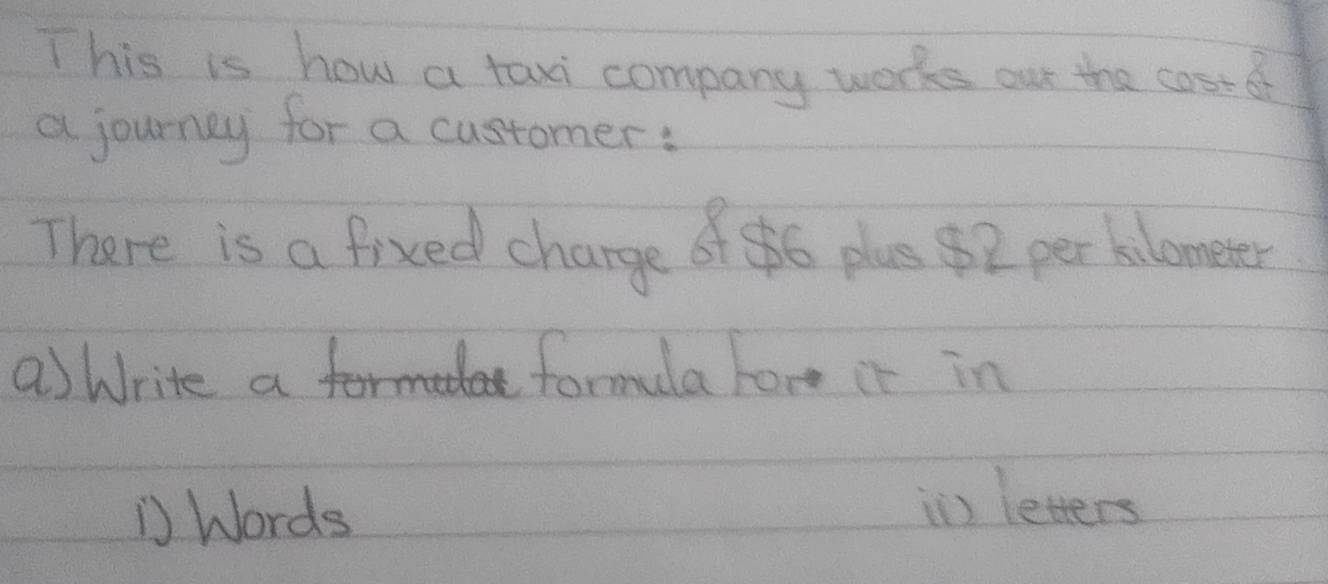 This is how a taxi company works out the cost of
a journey for a customer:
There is a fixed charge of $6 plus $2 per kilometer
a) Write a formula for it in
i) Words ii) letters